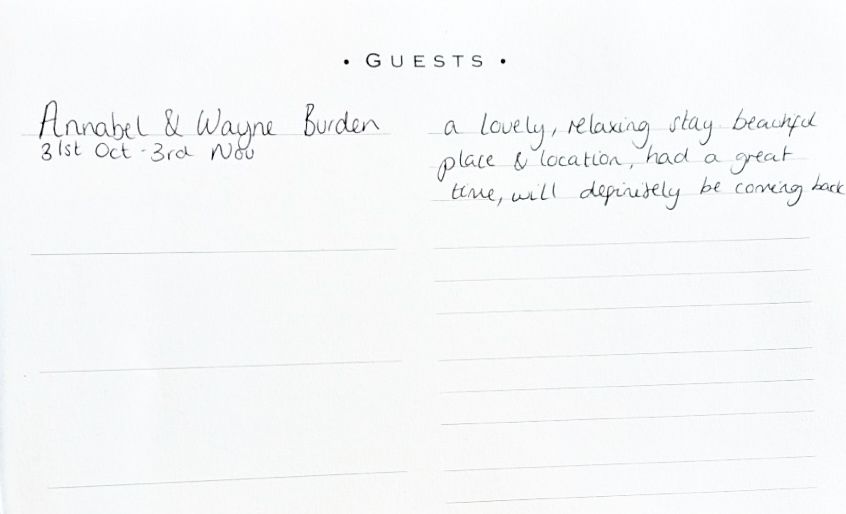 • GUESTS •
Annabel & Wayne Burden
31st Oct - 3rd Nov
a lovely, relaxing stay beautiful
place & location, had a great
time, will definitely be coming back